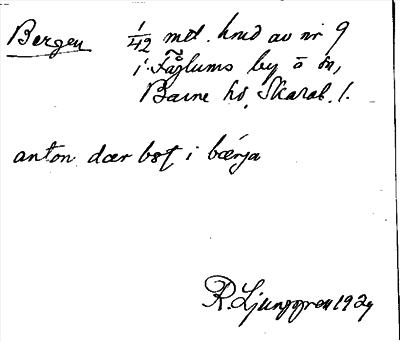 Bergen 1/42 mtl. hrud av nr 9
i Fåglums by o sn,
Barne hd, Skarab. l.
anton dær bot i bærja
R. Ljunggren 1929